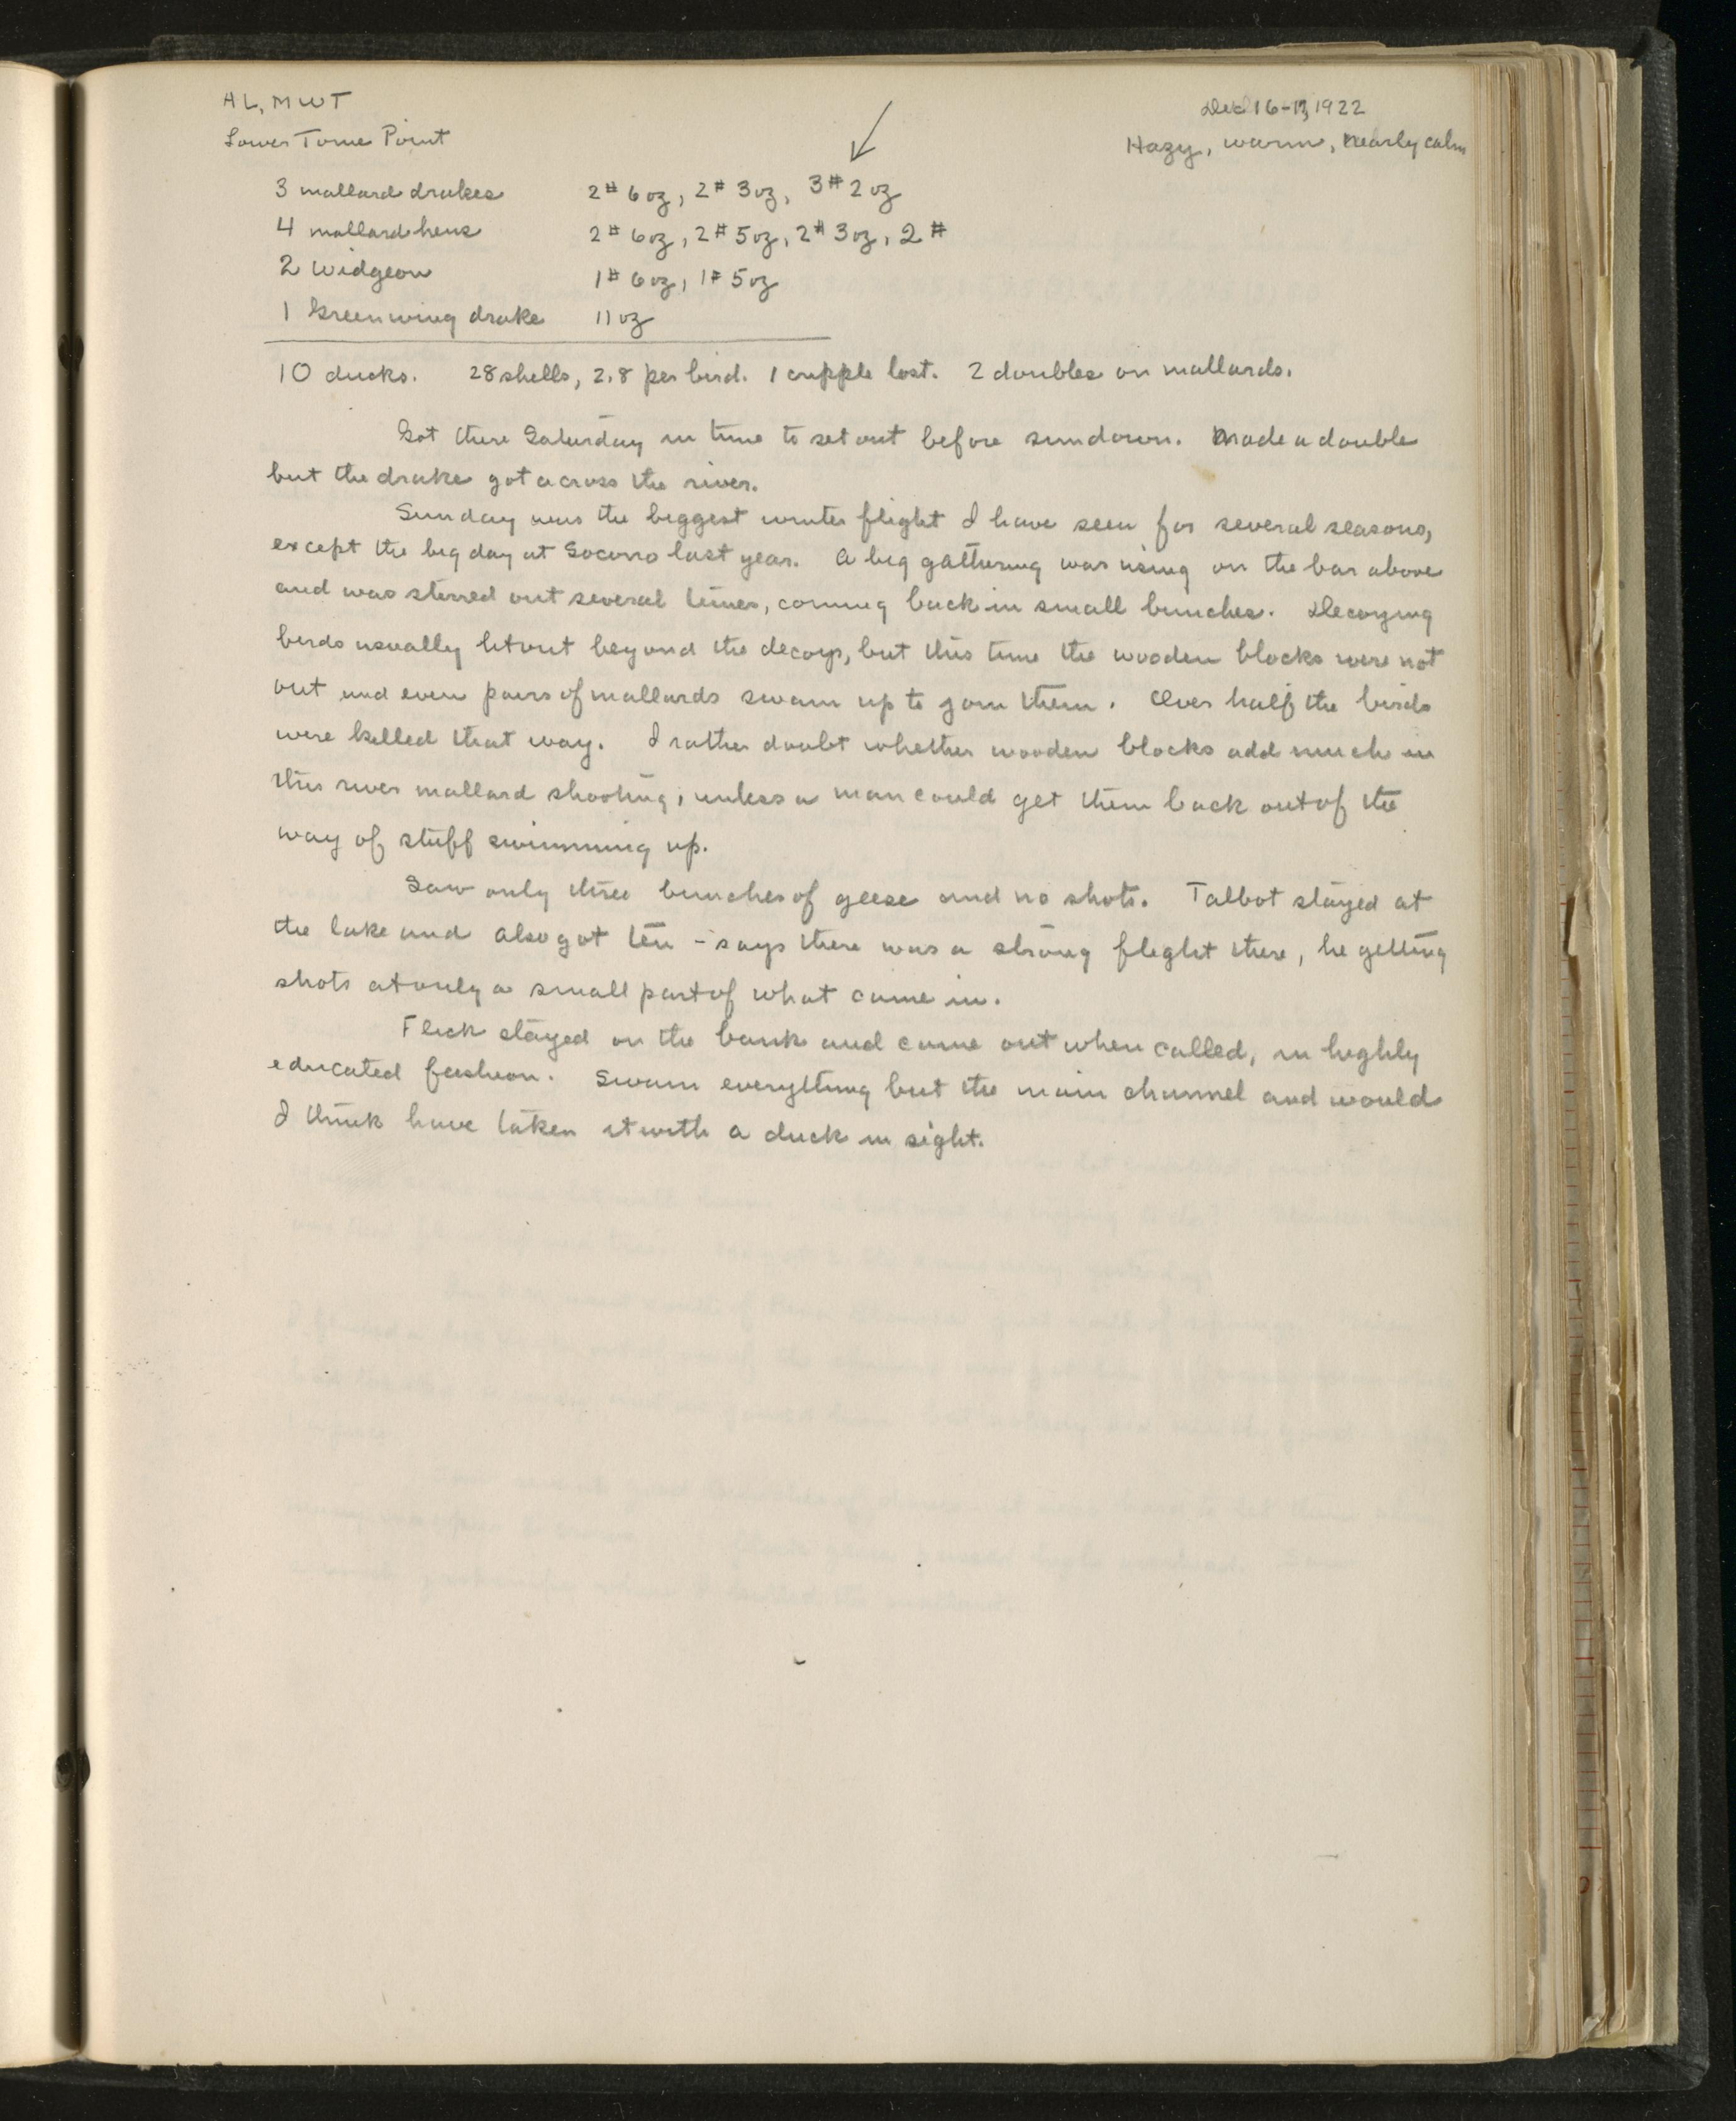 AL, MWT
Dec 16-17, 1922
Lower Tome Point
Hazy, warm, nearly calm
3 mallard drakes 2# 6 oz, 2# 3 oz, 3# 2 oz
4 mallard hens 2# 6 oz, 2# 5 oz, 2# 3 oz, 2#
2 Widgeon 1# 6 oz, 1# 5 oz
1 Greenwing drake 11 oz
10 ducks. 28 shells, 2.8 per bird. 1 cripple lost. 2 doubles on mallards.
Got there Saturday in time to set out before sundown. Made a double
but the drake got across the river.
Sunday was the biggest winter flight I have seen for several seasons,
except the big day at Socorro last year. A big gathering was using on the bar above
and was stirred out several times, coming back in small bunches. Decoying
birds usually lit out beyond the decoys, but this time the wooden blocks were not
out and even pairs of mallards swam up to join them. Over half the birds
were killed that way. I rather doubt whether wooden blocks add much in
this river mallard shooting, unless a man could get them back out of the
way of stuff swimming up.
Saw only three bunches of geese and no shots. Talbot stayed at
the lake and also got ten - says there was a strong flight there, he getting
shots at only a small part of what came in.
Flick stayed on the bank and came out when called, in highly
educated fashion. Swam everything but the main channel and would
I think have taken it with a duck in sight.